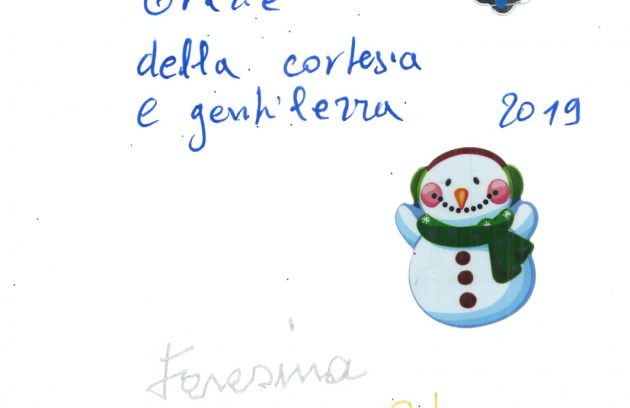 della cortesia
e gentilezza 2019
Teresina